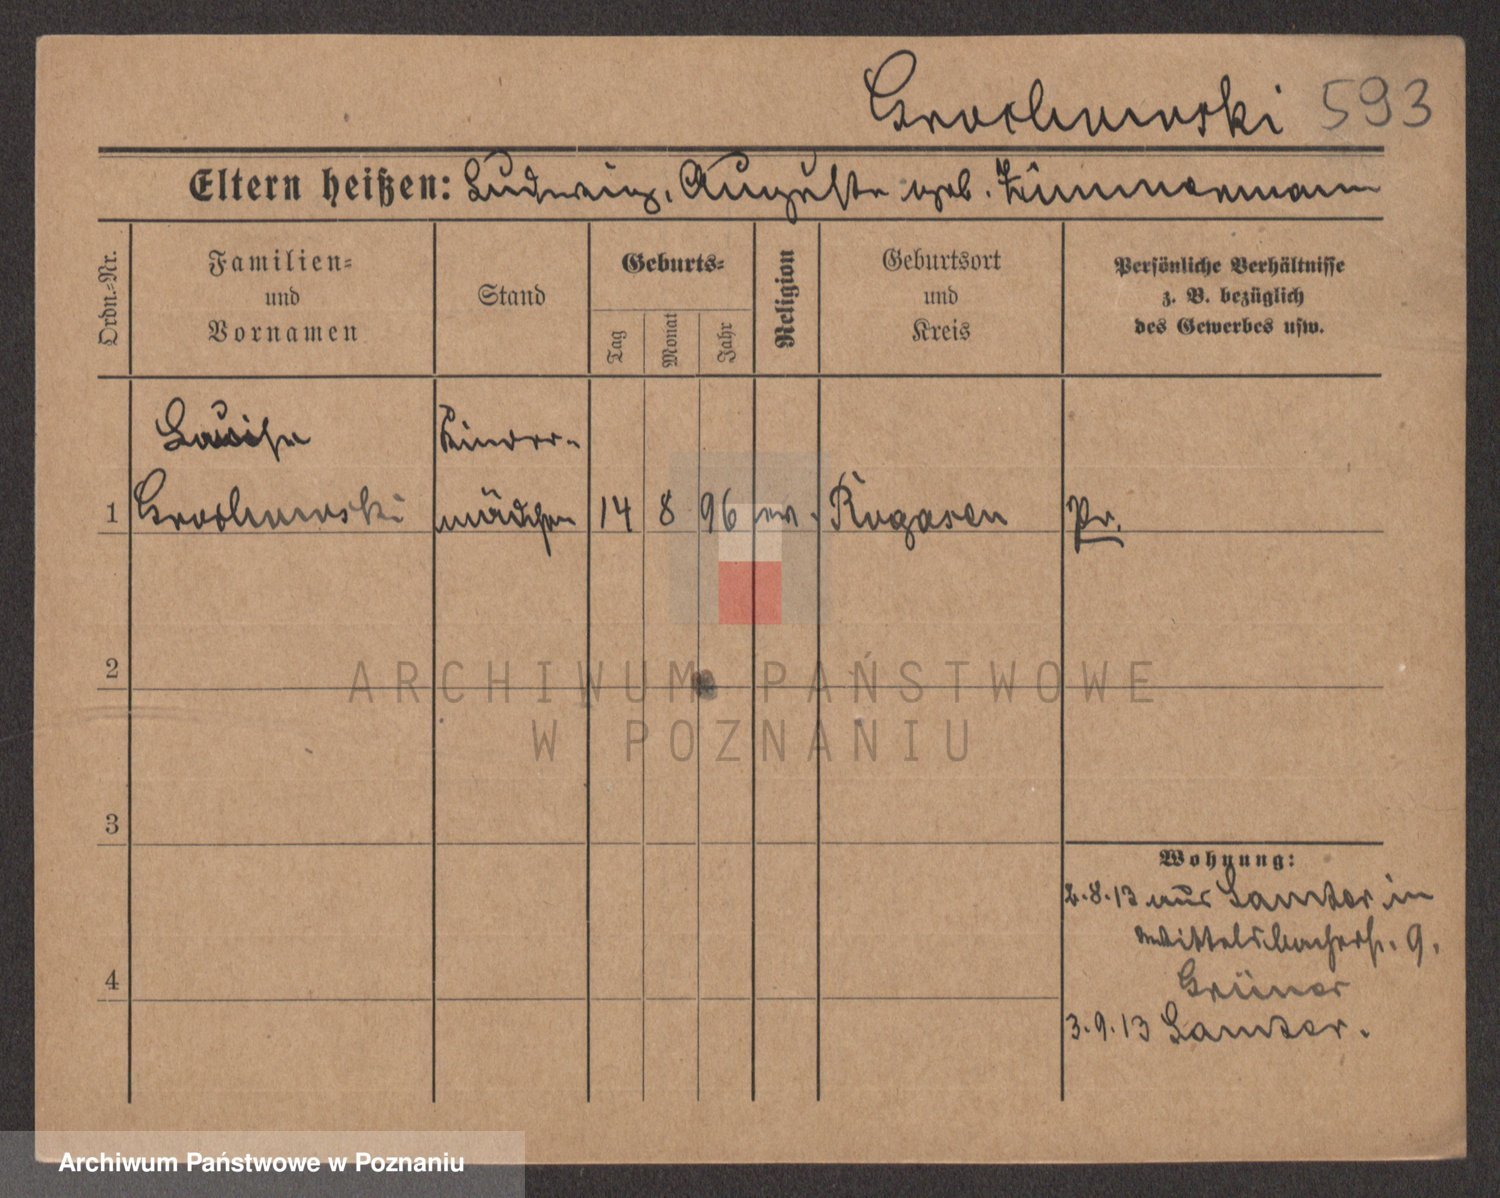 Grochowski 593
Eltern heißen: Ludwig, Auguste geb. Zimmermann
Ordn.-Nr.
Familien-
und
Vornamen
Stand
Geburts-
Tag
Monat
Jahr
Religion
Geburtsort
und
Kreis
Persönliche Verhältnisse
z. B. bezüglich
des Gewerbes usw.
Louise Kinder-
1 Grochowski mädchen 14 8 96 ev. Rogasen Pr.
2
ARCHIWUM PAŃSTWOWE
W POZNANIU
3
Wohnung:
2.8.13 aus Samter in
Wittelsbacherstr. 9.
4
Grüner
3.9.13 Samter.
Archiwum Państwowe w Poznaniu